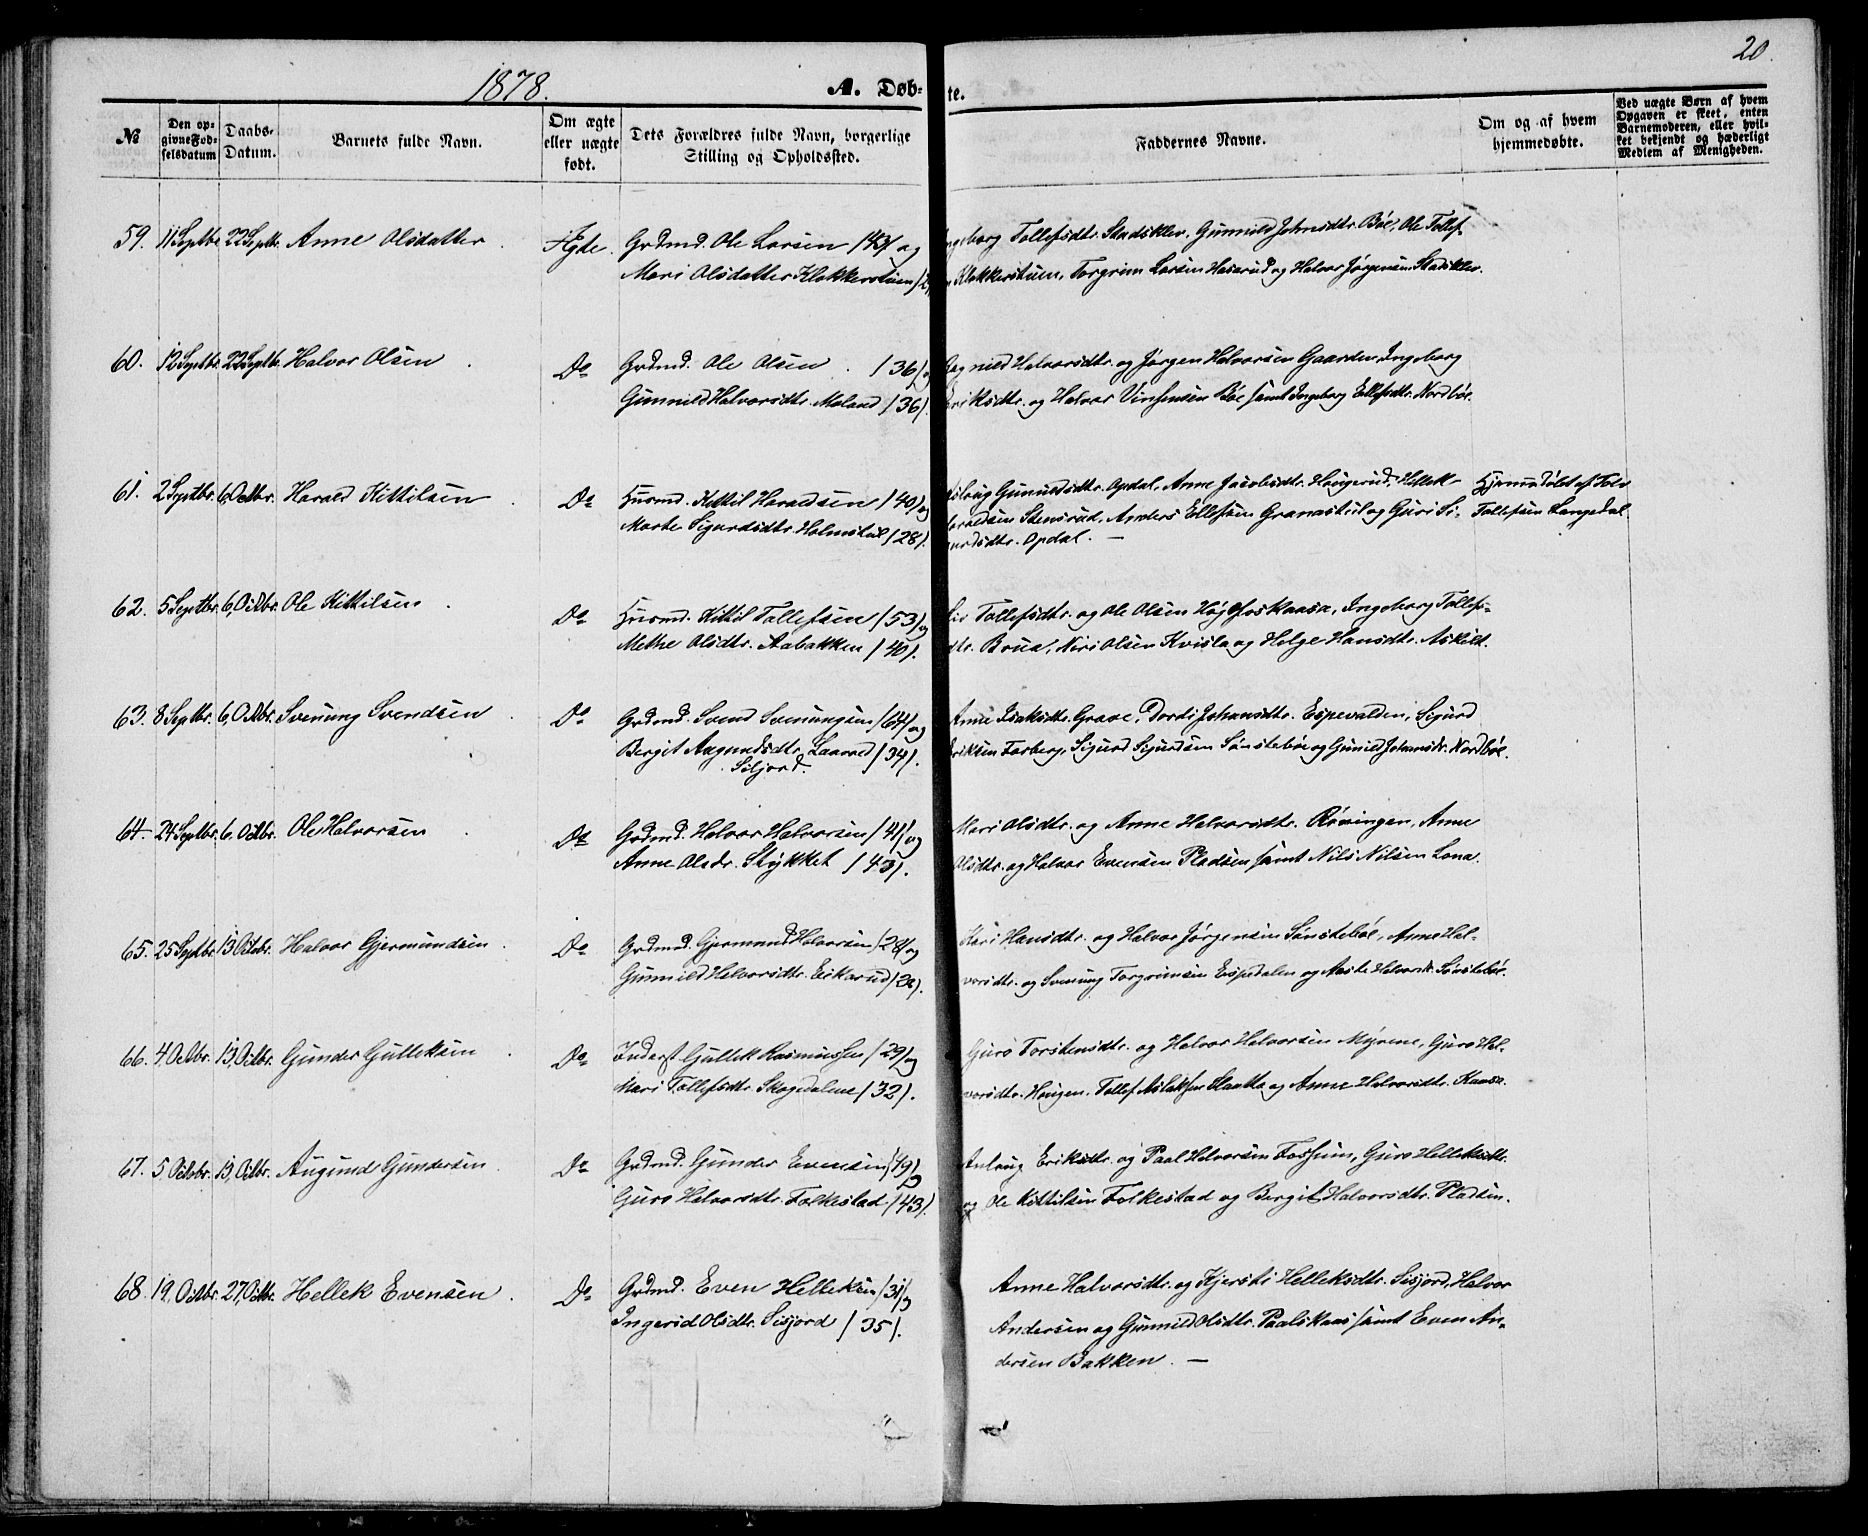 20.
1878. A. Døbte.
№
Den opgivne Fødselsdatum
Daabs-Datum.
Barnets fulde Navn.
Om ægte eller uægte født.
Dets Forældres fulde Navn, borgerlige Stilling og Opholdssted.
Faddernes Navne.
Om og af hvem hjemmedøbte.
Ved uægte Børn af hvem Opgaven er skeet, enten Barnemoderen, eller hvilket bekjendt og hæderligt Medlem af Menigheden.
59. 11 Septbr. 22 Septbr. Anne Olsdatter. Ægte. Grdmd. Ole Larsen /43/ og
Mari Olsdatter Klokkerstuen
Ingeborg Tollefsdtr. Stadsklev, Gunnild Johnsdtr. Bøe, Ole Tollef-
Klokkerstuen, Torgrim Larsen Haserud og Halvor Jørgensen Stadsklev.
60. 12 Septbr. 22 Septb. Halvor Olsen. Do Grdmd. Ole Olsen /36/ og
Gunnild Halvorsdtr. Moland /36/.
Ragnild Halvorsdtr. og Jørgen Halvorsen Gaarden, Ingeborg
Eriksdtr. og Halvor Vinsensen Bøe samt Ingeborg Ellefsdtr. Nordbøe.
61. 2 Septbr. 6 Octbr. Harald Kittilsen. Do Husmd. Kittil Haraldsen /40/ og
Marte Sigurdsdtr. Holmstul /28/.
Aslaug Gunuldsdtr. Opdal, Anne Jacobsdtr. Haugerud, Hellek
Haraldsen Stensrud, Anders Ellefsen Granastul og Guri Si-
gurdsdtr. Opdal. —
Hjemmedøbt af Halv.
Tollefsen Langedal.
62. 5 Septbr. 6, Octbr. Ole Kittilsen. Do Husmd. Kittil Tollefsen /53/ og
Methe Olsdtr. Aabakken /40/.
Liv Tollefsdtr. og Ole Olsen Høgfoskaasa, Ingeborg Tollefs-
dtr. Brua, Niri Olsen Kvisla og Helge Hansdtr. Askilt.
63. 8 Septbr. 6, Octbr. Svenung Svendsen. Do Grdmd. Svend Svenungsen /64/ og
Bergit Aagundsdtr. Laarvel /34/.
Siljord.
Anne Isaksdtr. Grave, Dordi Johansdtr. Espevalden, Sigurd
Eriksen Forberg, Sigurd Sigurdsen Sønstebøe og Gunild Johansdtr. Nordbøe.
64. 24 Septbr. 6. Octbr. Ole Halvorsen Do Grdmd. Halvor Halvorsen /41/ og
Anne Olsdr. Stykket /43/.
Mari Olsdtr. og Anne Halvorsdtr. Røningen, Anne
Olsdtr. og Halvor Evensen Pladsen samt Nils Nilsen Lona.
65. 25 Septbr. 13 Octbr. Halvor Gjermundsen. Do Grdmd. Gjermund Halvorsen /28/ og
Gunnild Halvorsdtr. Eikerud
Kari Hansdtr. og Halvor Jørgensen Sønstebøe, Anne Hal-
vorsdtr. og Svenung Torgrimsen Espedalen og Aaste Halvorsdr. Sønstebøe.
66. 4 Octbr. 13, Octbr. Gunder Gulleksen. Do Inderst Gullek Rasmussen /29/ og
Mari Tollefsdtr. Skogedalene /32/.
Guro Torstensdtr. og Halvor Halvorsen Myrene, Guro Hal-
vorsdtr. Haugen, Tollef Aslaksen Slaatta og Anne Halvorsdtr. Kaasa.
67. 5 Octobr. 13, Octbr. Augund Gundersen. Do Grdmd. Gunder Evensen /49/ og
Guro Halvorsdtr. Folkestad /43/.
Aslaug Eriksdtr. og Paal Halvorsen Fossum, Guro Helleksdtr.
og Ole Kittilsen Folkestad og Bergit Halvorsdtr. Pladsen.
68. 19. Octbr. 27, Octbr. Hellek Evensen. Do Grdmd. Even Helleksen /31/ og
Ingerid Olsdtr. Sisjord /35/.
Anne Halvorsdtr. og Kjersti Helleksdtr. Sisjord, Halvor
Andersen og Gunnild Olsdtr. Paalskaas samt Even An-
dersen Bakken. —